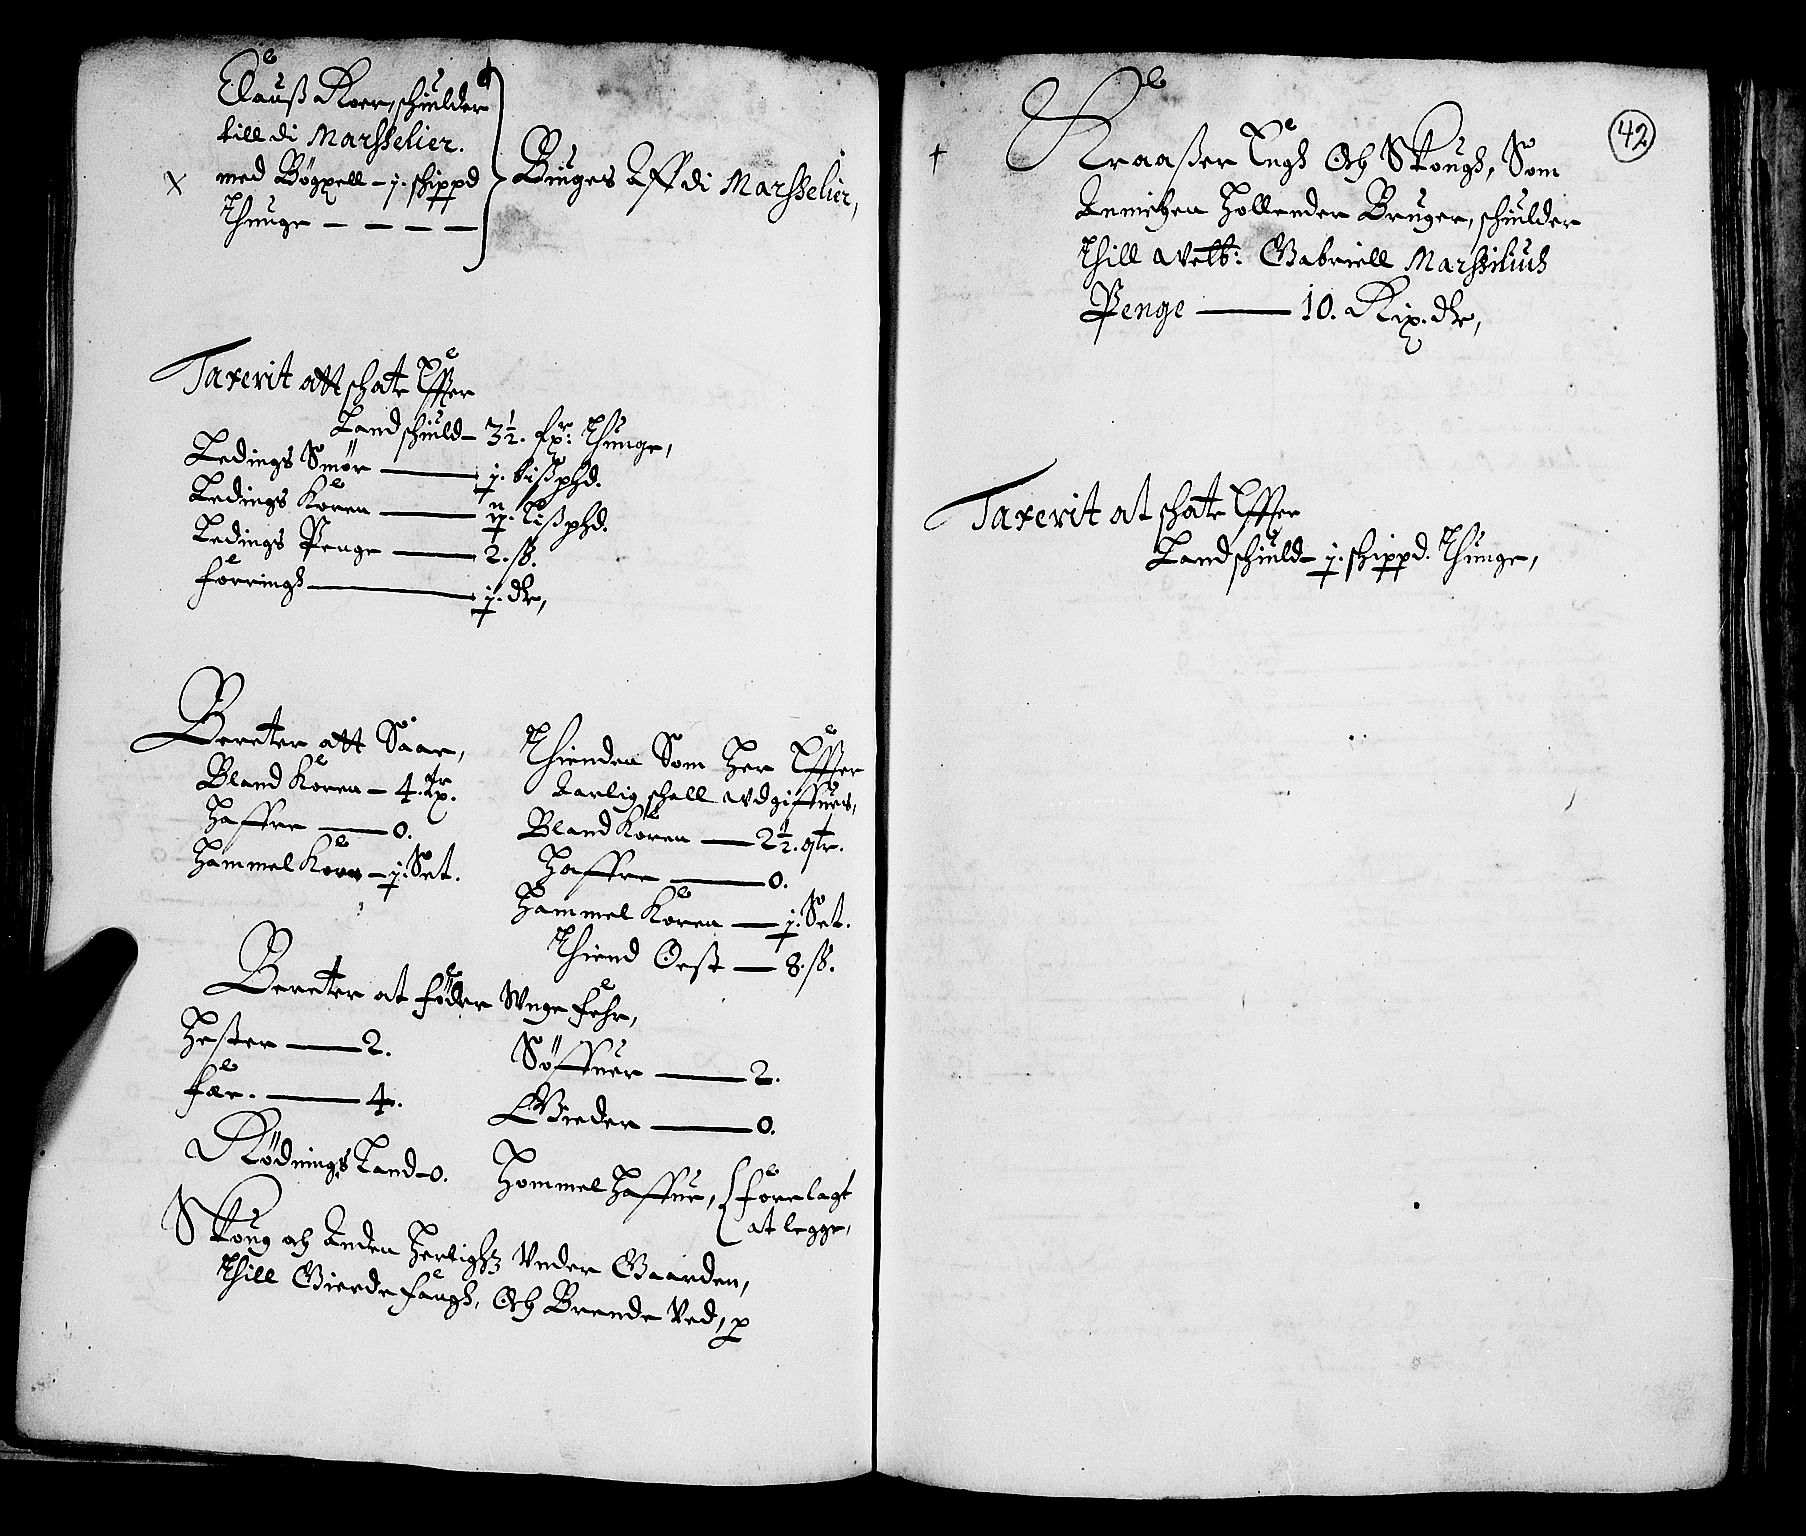 Clauß Koer, schiulder
till di Marsselier.
x med Bögxell – j. schippd
Thunge – – – –
Bruges Aff di Marsselier,
Taxerit att schate Effter
Landschiuld – 3½. fr: Thunge,
Ledings Smör — j. Lißphd.
Ledings Koren — ij. Lißphd.
Ledings Penge — 2. ß.
forrings — j. dlr,
Bereter att Saae,
Bland Koren – 4. qtr.
Haffre — 0.
Hammel Koren – j. Set.
Thienden Som Her Effter
Aarlig schall Udgiffues,
Bland Koren — 2½. qtr.
Haffre — 0.
Hammel Koren — j. Set.
Thiend Oest — 8. ß.
Bereter at föder Unge fehr,
Hester — 2.
fær. — 4.
Söffuer — 2.
Gieder — 0.
Rödnings Land – 0.
Hommel Haffue, (forelagt
at legge,
Skoug och Anden Herlighz Under Gaarden,
Thill Gierde fangs, Och Brende Ved, p
42
+ Kraager Engs Och Skougs, Som
Hollender Bruger, schiulder
Thill Welb: Gabriell Marssilius
Penge — 10. Rix. dlr,
Taxerit at schate Effter
Landschiuld – j. schippd. Thunge,